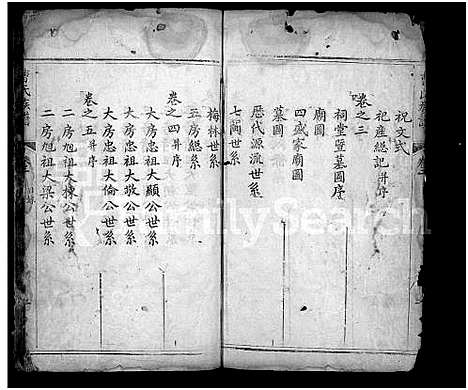 祝文式
祀產總記併序
卷之三
祠堂暨墓圖序
廟圖
四盛家廟圖
墓圖
歷代源流世系
七閩世系
梅林世系
五房總系
卷之四併序
大房忠祖大顯公世系
大房忠祖大敬公世系
大房忠祖大倫公世系
卷之五併序
二房旭祖大棟公世系
二房旭祖大梁公世系
FamilySearch